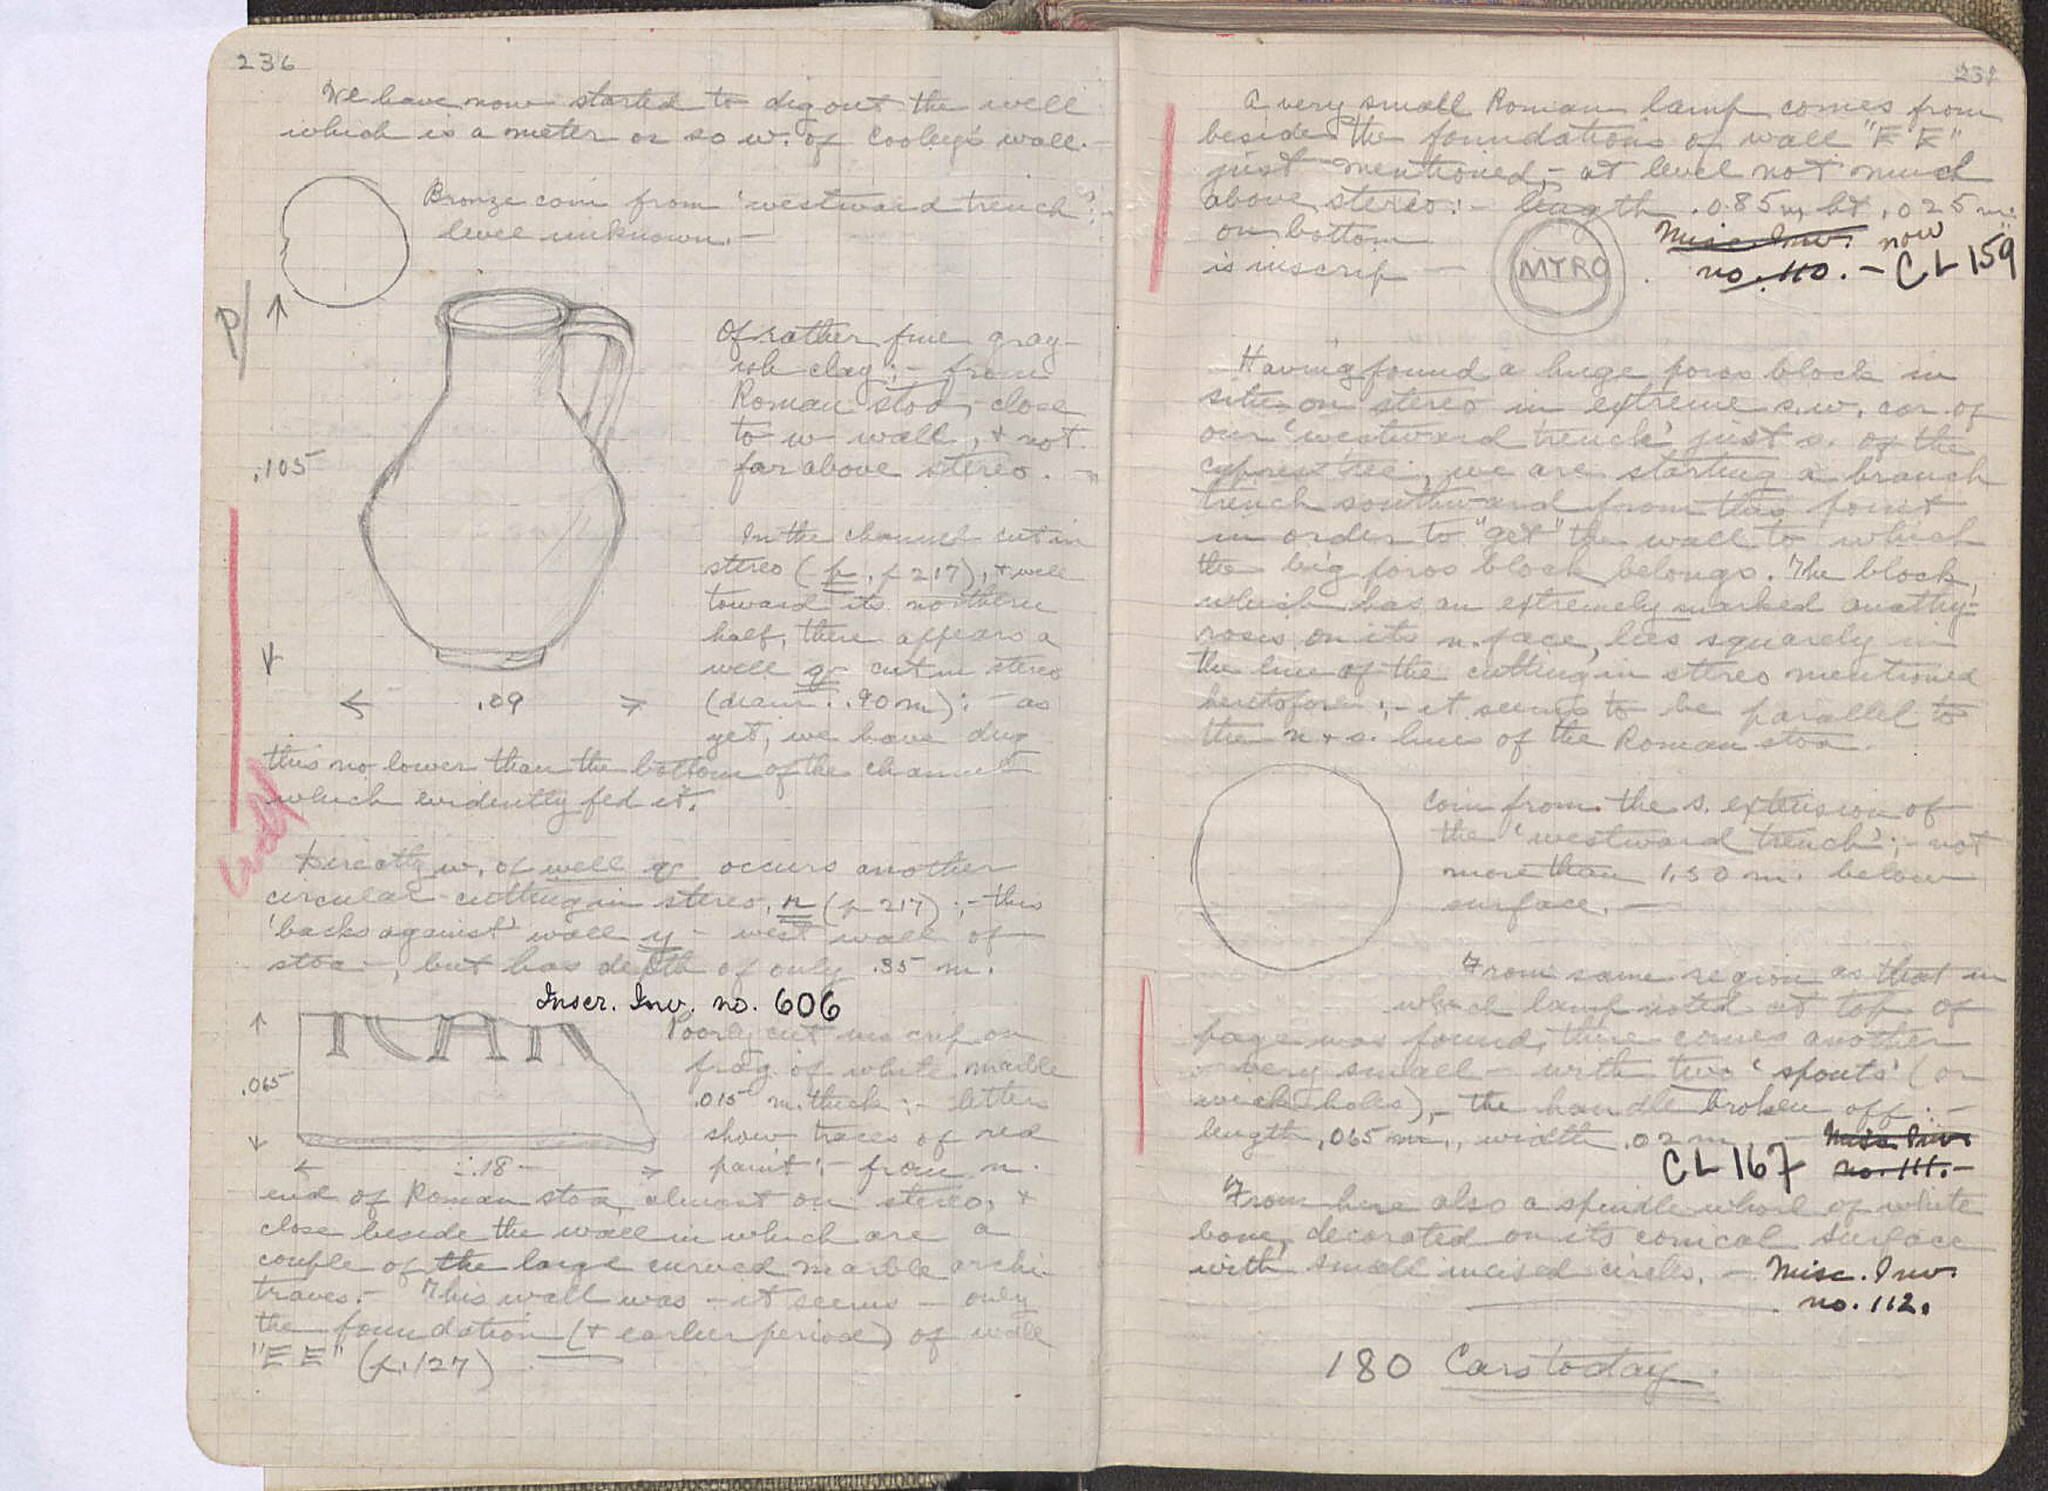 236
We have now started to dig out the well
which is a meter or so w. of Cooley's wall.-
Bronze coin from 'westward trench';-
level unknown.-
P/
Of rather fine gray-
ish clay;- from
Roman stoa,- close
to w wall, & not
far above stereo. -
.105
.09
In the channel cut in
stereo (p, p 217), & well
toward its northern
half, there appears a
well q cut in stereo
(diam. .90 m); - as
yet, we have dug
this no lower than the bottom of the channel
which evidently fed it.
well
Directly w. of well q occurs another
circular cutting in stereo, r (p 217);- this
'backs against' wall y - west wall of
stoa -, but has depth of only .35 m.
Inscr. Inv. no. 606
Poorly cut inscrip on
frag. of white marble
.015 m. thick:- letters
show traces of red
paint:- from n.
.065
.18-
end of Roman stoa, almost on stereo, &
close beside the wall in which are a
couple of the large curved marble archi-
traves.- This wall was - it seems - only
the foundation (& earlier period) of wall
"EE" (p.127)
237
A very small Roman lamp comes from
beside the foundations of wall "EE"
just mentioned,- at level not much
above stereo:- length .085m, ht .025 m:
on bottom
is inscrip -
MYRO
Misc. Inv. now
no. 110. - CL 159
Having found a huge poros block in
situ on stereo in extreme s.w. cor. of
our 'westward trench' just s. of the
cypress tree, we are starting a branch
trench southward from this point
in order to "get" the wall to which
the big poros block belongs. The block,
which has an extremely marked anathy-
rosis on its n. face, lies squarely in
the line of the cutting in stereo mentioned
heretofore;- it seems to be parallel to
the n & s. lines of the Roman stoa.
Coin from the s. extension of
the 'westward trench';- not
more than 1.50 m. below
surface. -
From same region as that in
which lamp noted at top of
page was found, there comes another
- very small - with two 'spouts' (or
wick holes),- the handle broken off:-
length .065 m., width .02 m. - Misc. Inv.
CL 167 no. 111.-
From here also a spindle whorl of white
bone, decorated on its conical surface
with small incised circles. - Misc. Inv.
no. 112.
180 Cars today.